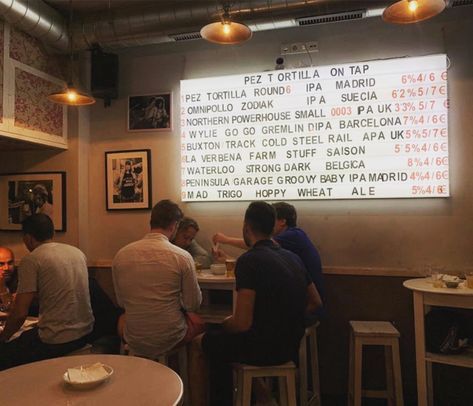 PEZ TORTILLA ON TAP
1 PEZ TORTILLA ROUND 6 IPA MADRID 6% 4/6 €
2 OMNIPOLLO ZODIAK IPA SUECIA 6'2% 5/7 €
3 NORTHERN POWERHOUSE SMALL 0003 IPA UK 3'3% 5/7 €
4 WYLIE GO GO GREMLIN DIPA BARCELONA 7% 4/6 €
5 BUXTON TRACK COLD STEEL RAIL APA UK 5% 5/7 €
6 LA VERBENA FARM STUFF SAISON 5'5% 4/6 €
7 WATERLOO STRONG DARK BELGICA 8% 4/6 €
8 PENINSULA GARAGE GROOVY BABY IPA MADRID 4% 4/6 €
9 MAD TRIGO HOPPY WHEAT ALE 5% 4/6 €